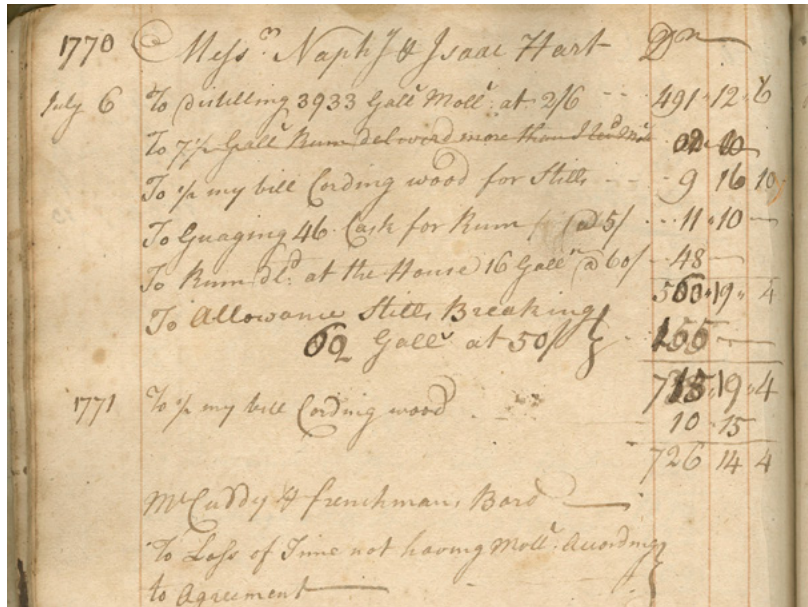 1770 Messrs Naphy & Isaac Hart Dr
July 6 To distilling 3933 Galls Molls: at 2/6 -- 491"12"6
To 7½ Galls Rum delivered more than
To ⅌ my bill Cording wood for Stills -- 9 16 10
To Guaging 46 Cask for Rum @ 5/ -- 11"10 —
To Rum dld: at the House 16 Galln @ 60/ -- 48 —
560"19" 4
To Allowance Stills Breaking
62 Galls at 50/ } 155 —
715"19"4
1771 To ⅌ my bill Cording wood 10 15
726 14 4
McCuddy & frenchmans Bord
To Loss of Time not having Molls: Acording
to Agreement